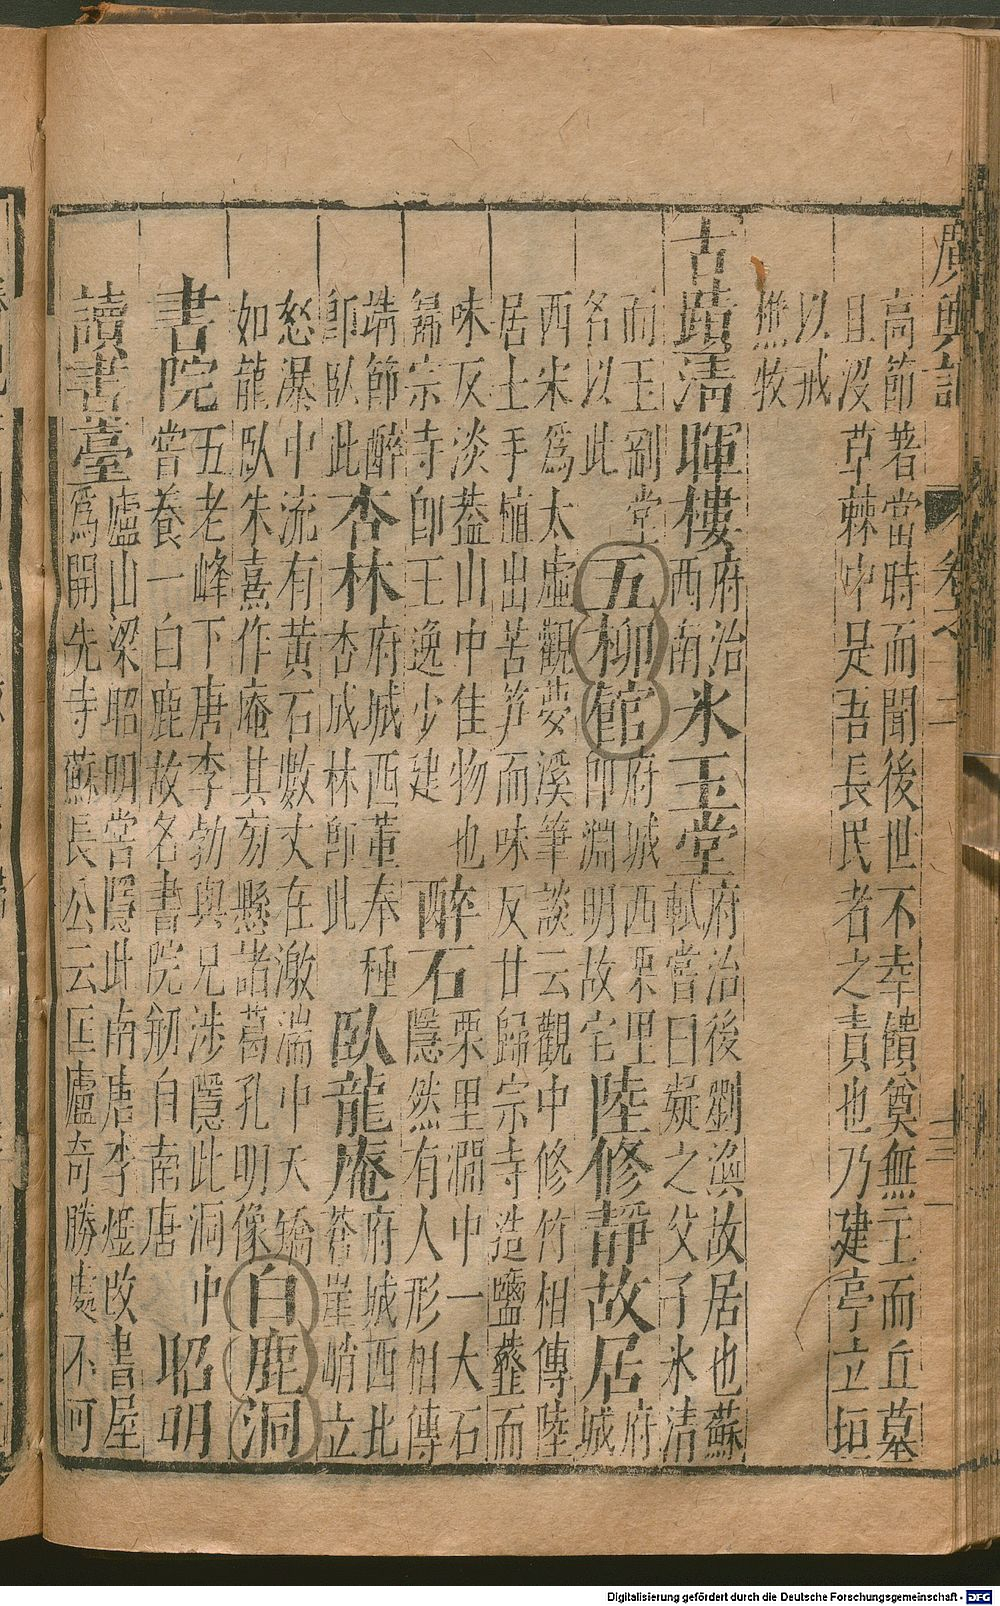 廣輿記 卷之十二 十三
高節著當時而聞後世不幸饋奠無主而丘墓
且沒草棘中是吾長民者之責也乃建亭立垣
以戒
樵牧
古蹟清暉樓府治
西南氷玉堂府治後劉渙故居也蘇
軾嘗曰凝之父子氷清
而玉剛堂
名以此五柳館府城西栗里
即淵明故宅陸修靜故居府
城
西宋為太虛觀夢溪筆談云觀中修竹相傳陸
居士手植出苦笋而味反甘歸宗寺造鹽虀而
味反淡葢山中佳物也
歸宗寺即王逸少建醉石栗里澗中一大石
隱然有人形相傳
靖節醉
即臥此杏林府城西董奉種
杏成林即此臥龍庵府城西北
蒼崖峭立
怒瀑中流有黃石數丈在激湍中夭矯
如龍臥朱熹作庵其旁懸諸葛孔明像白鹿洞
書院五老峰下唐李勃與兄涉隱此洞中
嘗養一白鹿故名書院剏自南唐昭明
讀書臺廬山梁昭明嘗隱此南唐李煜改書屋
為開先寺蘇長公云匡廬奇勝處不可
Digitalisierung gefördert durch die Deutsche Forschungsgemeinschaft - DFG